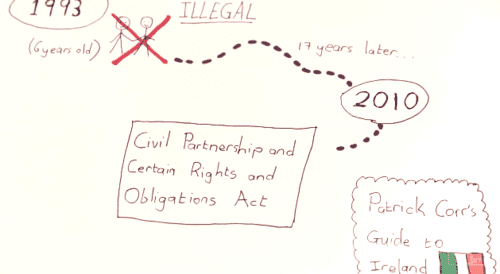 1993
ILLEGAL
(6 years old)
17 years later...
2010
Civil Partnership and
Certain Rights and
Obligations Act
Patrick Corr's
Guide to
Ireland